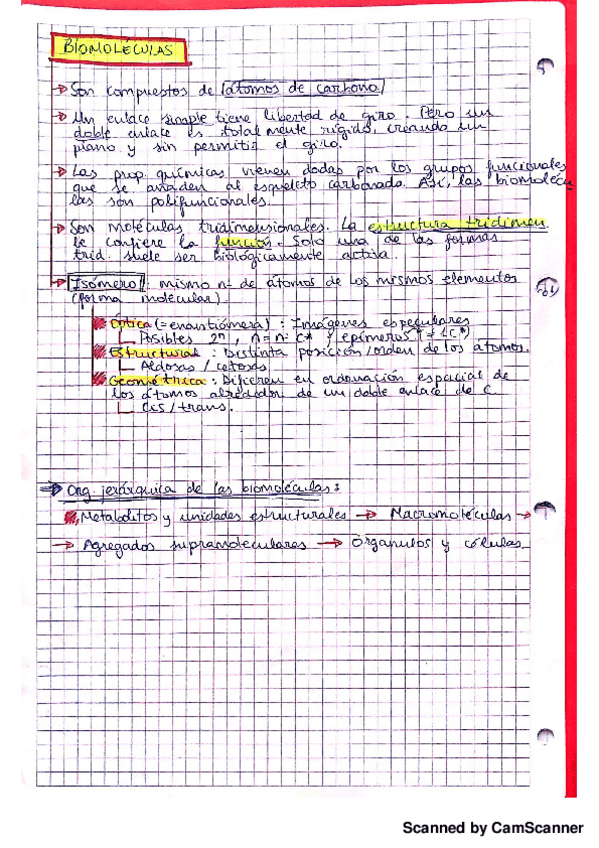 BIOMOLÉCULAS
→ Son compuestos de átomos de carbono
→ Un enlace simple tiene libertad de giro. Pero un
doble enlace es totalmente rígido, creando un
plano y sin permitir el giro.
→ Las prop. químicas vienen dadas por los grupos funcionales
que se añaden al esqueleto carbonado. Así, las biomolécu
las son polifuncionales.
→ Son moléculas tridimensionales. La estructura tridimen
le confiere la función. Solo una de las formas
trid. suele ser biológicamente activa.
→ Isómero: mismo nº de átomos de los mismos elementos
(forma molecular)
Óptica (= enantiómera): Imágenes especulares
Posibles 2ⁿ, n = nº C* y epímeros (≠ 1C*)
Estructural: Distinta posición/orden de los átomos.
Aldosas / cetosas
Geométrica: Difieren en ordenación espacial de
los átomos alrededor de un doble enlace de C.
Cis / trans.
→ Org. jerárquica de las biomoléculas:
Metabolitos y unidades estructurales → Macromoléculas →
→ Agregados supramoleculares → Orgánulos y células
Scanned by CamScanner